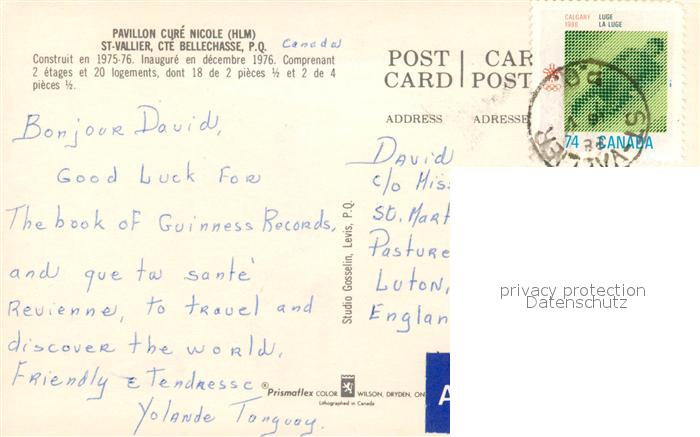 PAVILLON CURÉ NICOLE (HLM)
ST-VALLIER, CTÉ BELLECHASSE, P.Q. Canada
Construit en 1975-76. Inauguré en décembre 1976. Comprenant
2 étages et 20 logements, dont 18 de 2 pièces ½ et 2 de 4
pièces ½.
Bonjour David,
Good Luck For
The book of Guinness Records,
and que ta santé
Revienne, to travel and
discover the world.
Friendly & Tendresse
Yolande Tanguay.
Studio Gosselin, Levis, P.Q.
®Prismaflex COLOR WILSON, DRYDEN, ON
Lithographed in Canada
POST CARD
CAR POST
ADDRESS ADRESSE
David
c/o Mis
St. Mart
Pasture
Luton,
Englan
CALGARY 1988
LUGE
LA LUGE
74 CANADA
P.Q.
ST-VALLIER
A
privacy protection
Datenschutz